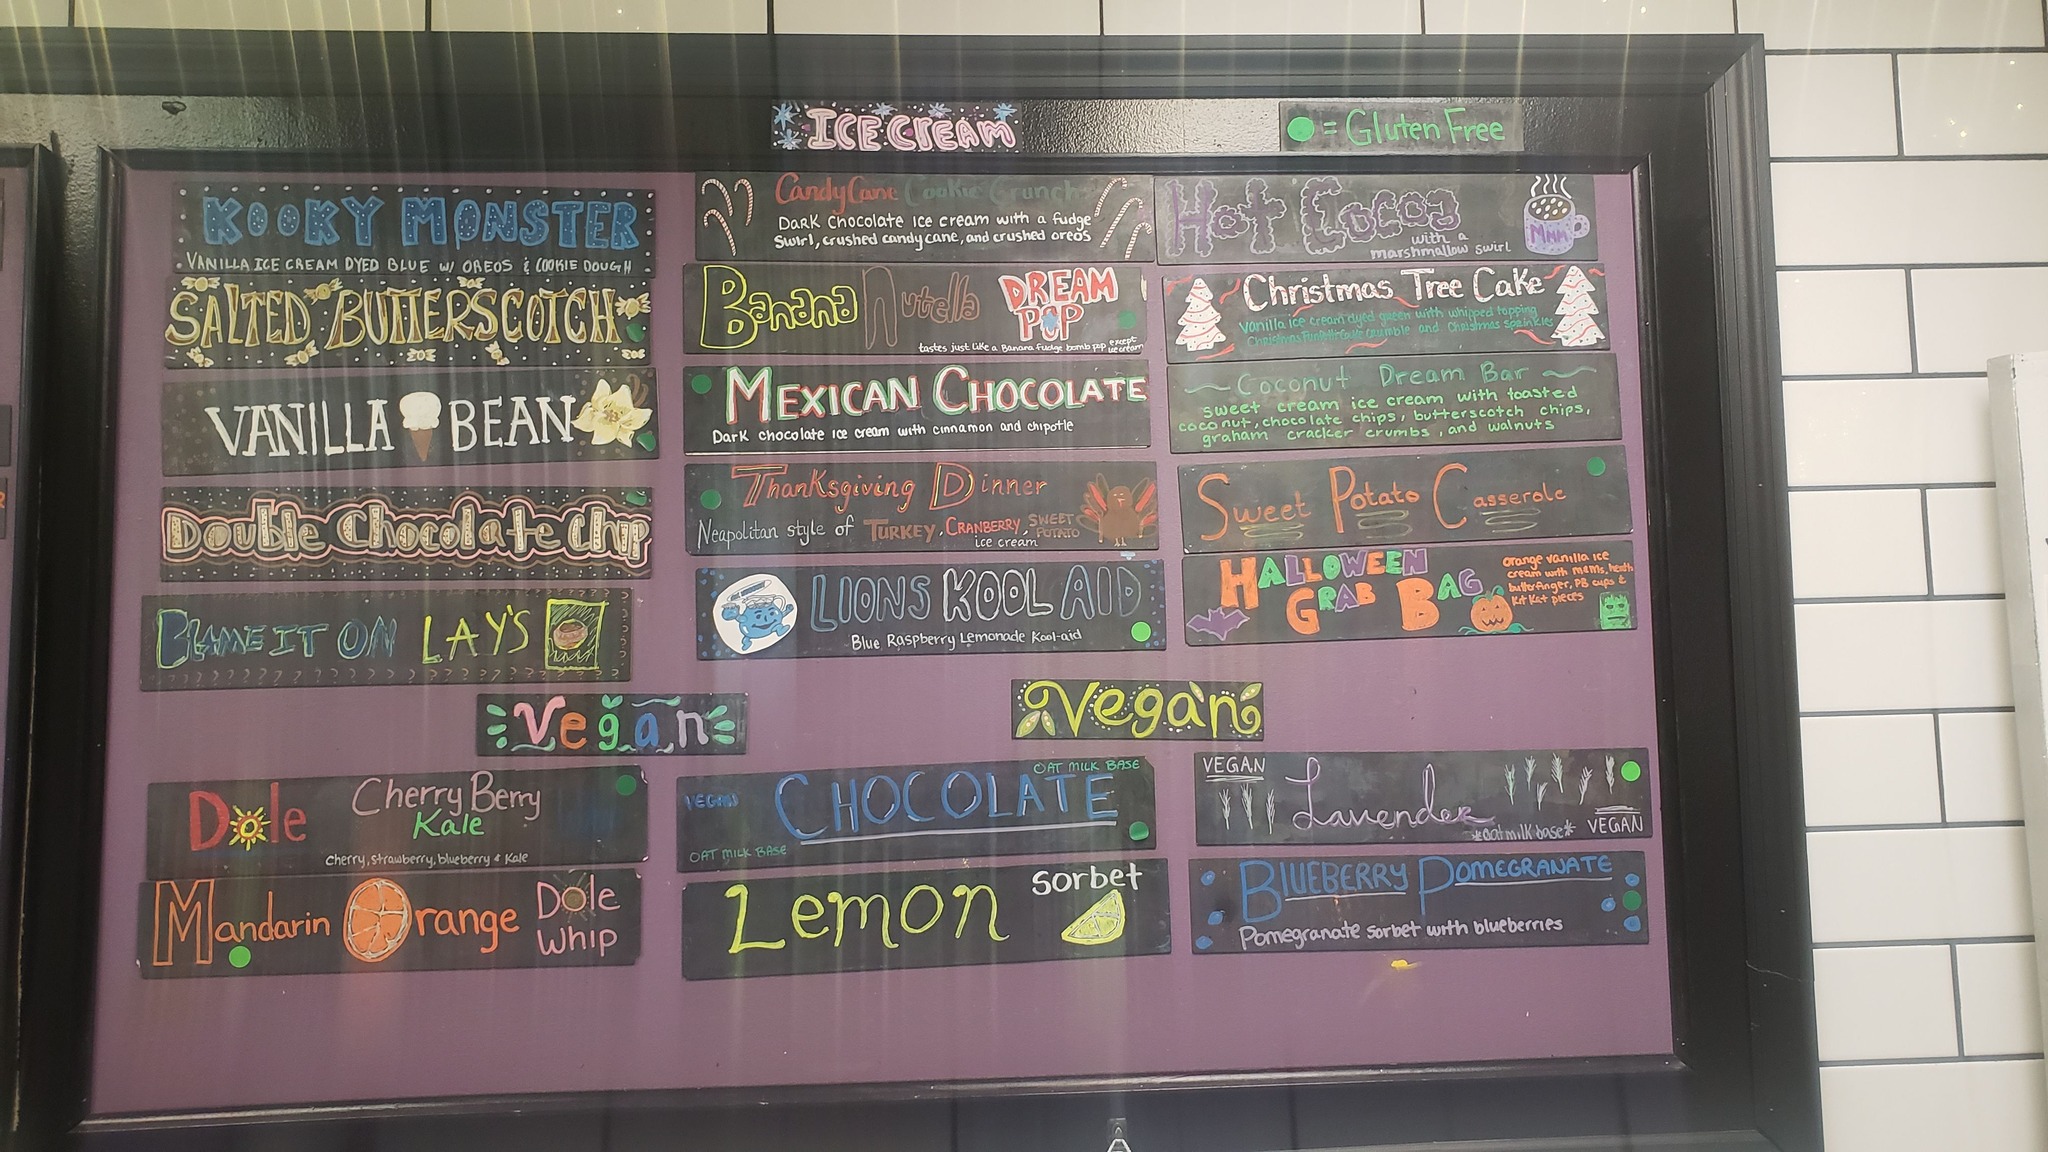 ICE CREAM
= Gluten Free
KOOKY MONSTER
VANILLA ICE CREAM DYED BLUE W/ OREOS & COOKIE DOUGH
SALTED BUTTERSCOTCH
VANILLA BEAN
Double Chocolate Chip
BLAME IT ON LAY'S
Candy Cane Cookie Crunch
Dark chocolate ice cream with a fudge
swirl, crushed candy cane, and crushed oreos
Banana Nutella DREAM
POP
tastes just like a Banana fudge bomb pop except
ice cream
MEXICAN CHOCOLATE
Dark chocolate ice cream with cinnamon and chipotle
Thanksgiving Dinner
Neapolitan style of TURKEY, CRANBERRY, SWEET
POTATO
ice cream
LIONS KOOL AID
Blue Raspberry Lemonade Kool-aid
Hot Cocoa
with a
marshmallow swirl
MMM
Christmas Tree Cake
Vanilla ice cream dyed green with whipped topping
Christmas Funfetti Cake crumble and Christmas sprinkles
Coconut Dream Bar
sweet cream ice cream with toasted
coconut, chocolate chips, butterscotch chips,
graham cracker crumbs, and walnuts
Sweet Potato Casserole
HALLOWEEN
GRAB BAG
orange vanilla ice
cream with m&ms, heath
butterfinger, PB cups &
kit kat pieces
Vegan
Vegan
Dole Cherry Berry
Kale
Cherry, strawberry, blueberry & Kale
Mandarin Orange Dole
Whip
OAT MILK BASE
VEGAN CHOCOLATE
OAT MILK BASE
Lemon sorbet
VEGAN Lavender
*oat milk base* VEGAN
BLUEBERRY POMEGRANATE
Pomegranate sorbet with blueberries